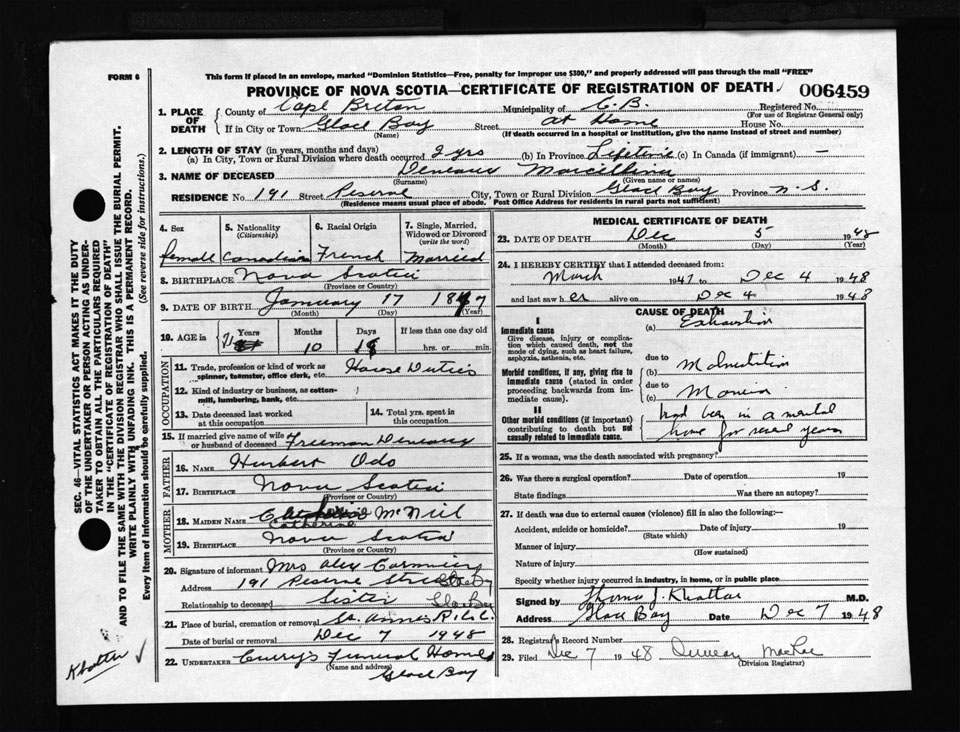 This form if placed in an envelope, marked "Dominion Statistics—Free, penalty for improper use $300," and properly addressed will pass through the mail "FREE"
FORM 6
PROVINCE OF NOVA SCOTIA—CERTIFICATE OF REGISTRATION OF DEATH 006459
1. PLACE OF DEATH
County of Cape Breton Municipality of C.B. Registered No.
(For use of Registrar General only)
If in City or Town Glace Bay Street at Home House No.
(Name) (If death occurred in a hospital or institution, give the name instead of street and number)
2. LENGTH OF STAY (in years, months and days)
(a) In City, Town or Rural Division where death occurred 2 yrs (b) In Province Lifetime (c) In Canada (if immigrant) —
3. NAME OF DECEASED Deneaux Marcellina
(Surname) (Given name or names)
RESIDENCE No 191 Street Reserve City, Town or Rural Division Glace Bay Province N.S.
(Residence means usual place of abode. Post Office Address for residents in rural parts not sufficient)
4. Sex female
5. Nationality (Citizenship) Canadian
6. Racial Origin French
7. Single, Married, Widowed or Divorced (write the word) Married
8. BIRTHPLACE Nova Scotia
(Province or Country)
9. DATE OF BIRTH January 17 1877
(Month) (Day) (Year)
10. AGE in Years 71 Months 10 Days 18 If less than one day old hrs. or min.
OCCUPATION
11. Trade, profession or kind of work as spinner, teamster, office clerk, etc. House Duties
12. Kind of industry or business, as cotton-mill, lumbering, bank, etc.
13. Date deceased last worked at this occupation
14. Total yrs. spent in this occupation
15. If married give name of wife or husband of deceased Freeman Deneaux
FATHER
16. NAME Hurbert Odo
17. BIRTHPLACE Nova Scotia
(Province or Country)
MOTHER
18. MAIDEN NAME Catherine McNeil
Catherine
19. BIRTHPLACE Nova Scotia
(Province or Country)
20. Signature of informant Mrs Alex Cormier
Address 191 Reserve Street
Relationship to deceased Sister Glace Bay
21. Place of burial, cremation or removal St. Annes R.C.
Date of burial or removal Dec 7 1948
22. UNDERTAKER Curry's Funeral Home
(Name and address)
Glace Bay
MEDICAL CERTIFICATE OF DEATH
23. DATE OF DEATH Dec 5 1948
(Month) (Day) (Year)
24. I HEREBY CERTIFY that I attended deceased from:
March 1947 to Dec 4 1948
and last saw her alive on Dec 4 1948
CAUSE OF DEATH
I
Immediate cause (a) Exhaustion
Give disease, injury or complication which caused death, not the mode of dying, such as heart failure, asphyxia, asthenia, etc.
due to
(b) Malnutrition
Morbid conditions, if any, giving rise to immediate cause (stated in order proceeding backwards from immediate cause).
due to
(c) Mania
II
Other morbid conditions (if important) contributing to death but not causally related to immediate cause.
had been in a mental
home for several years
25. If a woman, was the death associated with pregnancy?
26. Was there a surgical operation? Date of operation 19
State findings Was there an autopsy?
27. If death was due to external causes (violence) fill in also the following:—
Accident, suicide or homicide? Date of injury 19
(State which)
Manner of injury
(How sustained)
Nature of injury
Specify whether injury occurred in industry, in home, or in public place
Signed by Thomas J. Khattar M.D.
Address Glace Bay Date Dec 7 1948
28. Registrar's Record Number
29. Filed Dec 7 1948 Duncan MacRae
(Division Registrar)
SEC. 46—VITAL STATISTICS ACT MAKES IT THE DUTY
OF THE UNDERTAKER OR PERSON ACTING AS UNDERTAKER TO OBTAIN ALL THE PARTICULARS REQUIRED
IN THE "CERTIFICATE OF REGISTRATION OF DEATH"
AND TO FILE THE SAME WITH THE DIVISION REGISTRAR WHO SHALL ISSUE THE BURIAL PERMIT.
WRITE PLAINLY WITH UNFADING INK. THIS IS A PERMANENT RECORD.
Every item of information should be carefully supplied. (See reverse side for instructions.)
Khattar